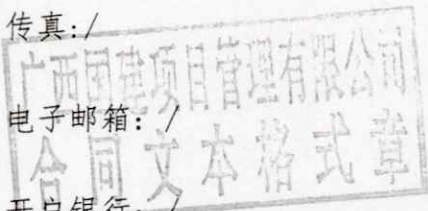 传真:/
广西国建项目管理有限公司
电子邮箱: /
合同文本格式章
开户银行: /